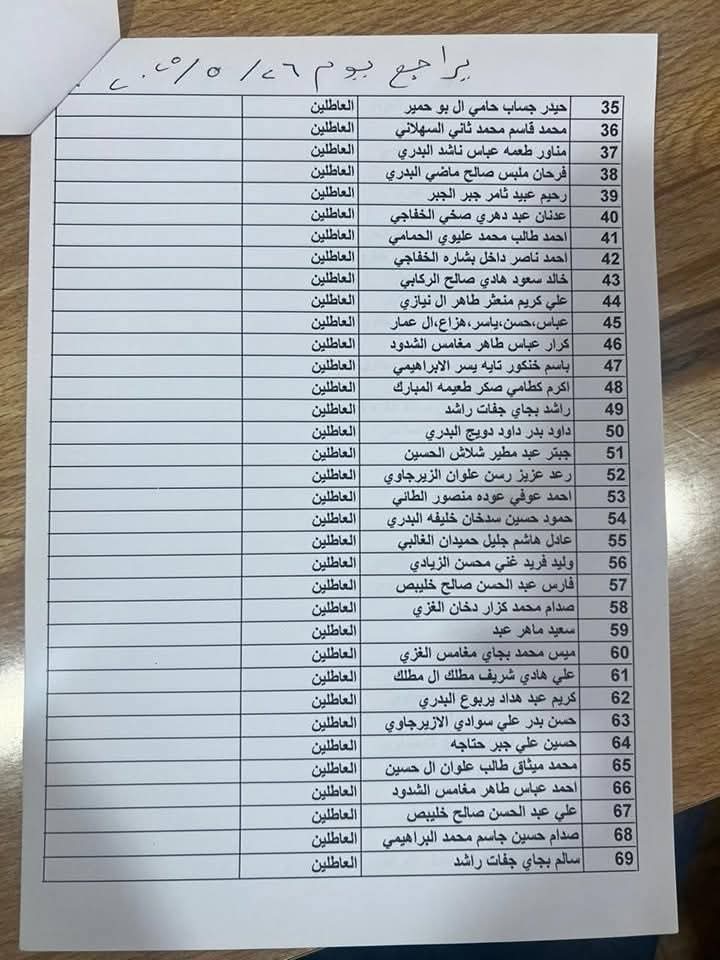 يراجع يوم ٢٦ / ٥ / ٢٠٢٥
35 حيدر جساب حامي ال بو حمير العاطلين
36 محمد قاسم محمد ثاني السهلاني العاطلين
37 مناور طعمه عباس ناشد البدري العاطلين
38 فرحان ملبس صالح ماضي البدري العاطلين
39 رحيم عبيد ثامر جبر الجبر العاطلين
40 عدنان عبد دهري صخي الخفاجي العاطلين
41 احمد طالب محمد عليوي الحمامي العاطلين
42 احمد ناصر داخل بشاره الخفاجي العاطلين
43 خالد سعود هادي صالح الركابي العاطلين
44 علي كريم منعثر طاهر ال نيازي العاطلين
45 عباس،حسن،ياسر،هزاع،ال عمار العاطلين
46 كرار عباس طاهر مغامس الشدود العاطلين
47 باسم خنكور تايه يسر الابراهيمي العاطلين
48 اكرم كطامي صكر طعيمه المبارك العاطلين
49 راشد بجاي جفات راشد العاطلين
50 داود بدر داود دويج البدري العاطلين
51 جبتر عبد مطير شلاش الحسين العاطلين
52 رعد عزيز رسن علوان الزيرجاوي العاطلين
53 احمد عوفي عوده منصور الطائي العاطلين
54 حمود حسين سدخان خليفه البدري العاطلين
55 عادل هاشم جليل حميدان الغالبي العاطلين
56 وليد فريد غني محسن الزيادي العاطلين
57 فارس عبد الحسن صالح خليبص العاطلين
58 صدام محمد كزار دخان الغزي العاطلين
59 سعيد ماهر عبد العاطلين
60 ميس محمد بجاي مغامس الغزي العاطلين
61 علي هادي شريف مطلك ال مطلك العاطلين
62 كريم عبد هداد يربوع البدري العاطلين
63 حسن بدر علي سوادي الازيرجاوي العاطلين
64 حسين علي جبر حتاجه العاطلين
65 محمد ميثاق طالب علوان ال حسين العاطلين
66 احمد عباس طاهر مغامس الشدود العاطلين
67 علي عبد الحسن صالح خليبص العاطلين
68 صدام حسين جاسم محمد البراهيمي العاطلين
69 سالم بجاي جفات راشد العاطلين